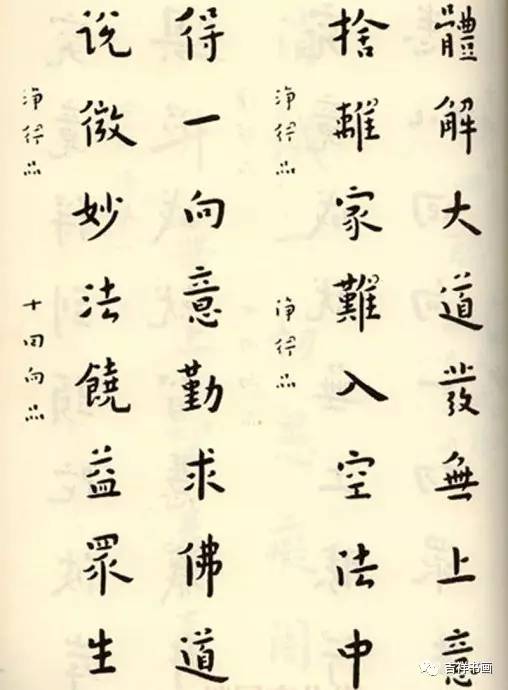 體解大道發無上意
捨離家難入空法中
淨行品
淨行品
得一向意勤求佛道
說微妙法饒益眾生
淨行品
十回向品
吉祥书画